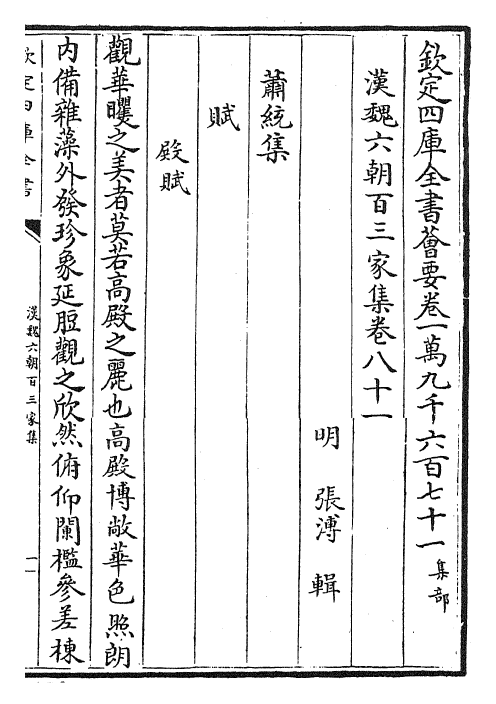 欽定四庫全書薈要卷一萬九千六百七十一 集部
漢魏六朝百三家集卷八十一
明 張溥 輯
蕭統集
賦
殿賦
觀華曖之美者莫若高殿之麗也高殿博敞華色照朗
内備雜藻外發珍象延脰觀之欣然俯仰闌檻參差棟
欽定四庫全書
漢魏六朝百三家集
一